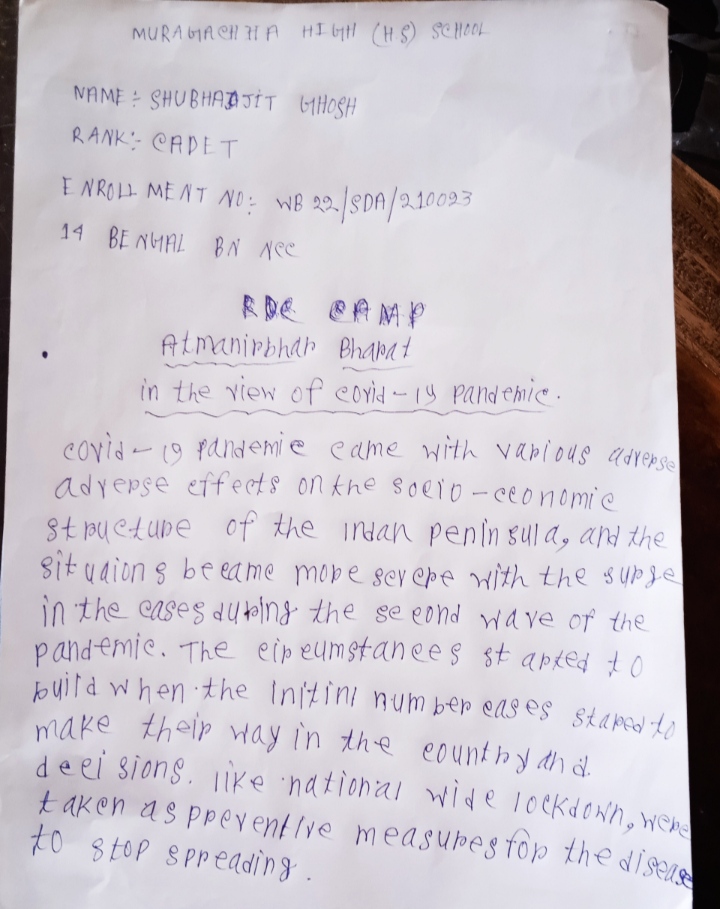 MURAGACHHA HIGH (HS) SCHOOL
NAME :- SHUBHAJIT GHOSH
RANK :- CADET
ENROLLMENT NO :- WB 22/SDA/210023
14 BENGAL BN NCC
RDC CAMP
Atmanirbhar Bharat
in the view of covid-19 pandemic.
covid-19 pandemic came with various adverse
adverse effects on the socio-economic
structure of the indan peninsula, and the
situaions became more severe with the surge
in the cases during the second wave of the
pandemic. The circumstances started to
build when the initinl number cases stared to
make their way in the country and
decisions. like national wide lockdown, were
taken as preventive measures for the disease
to stop spreading.